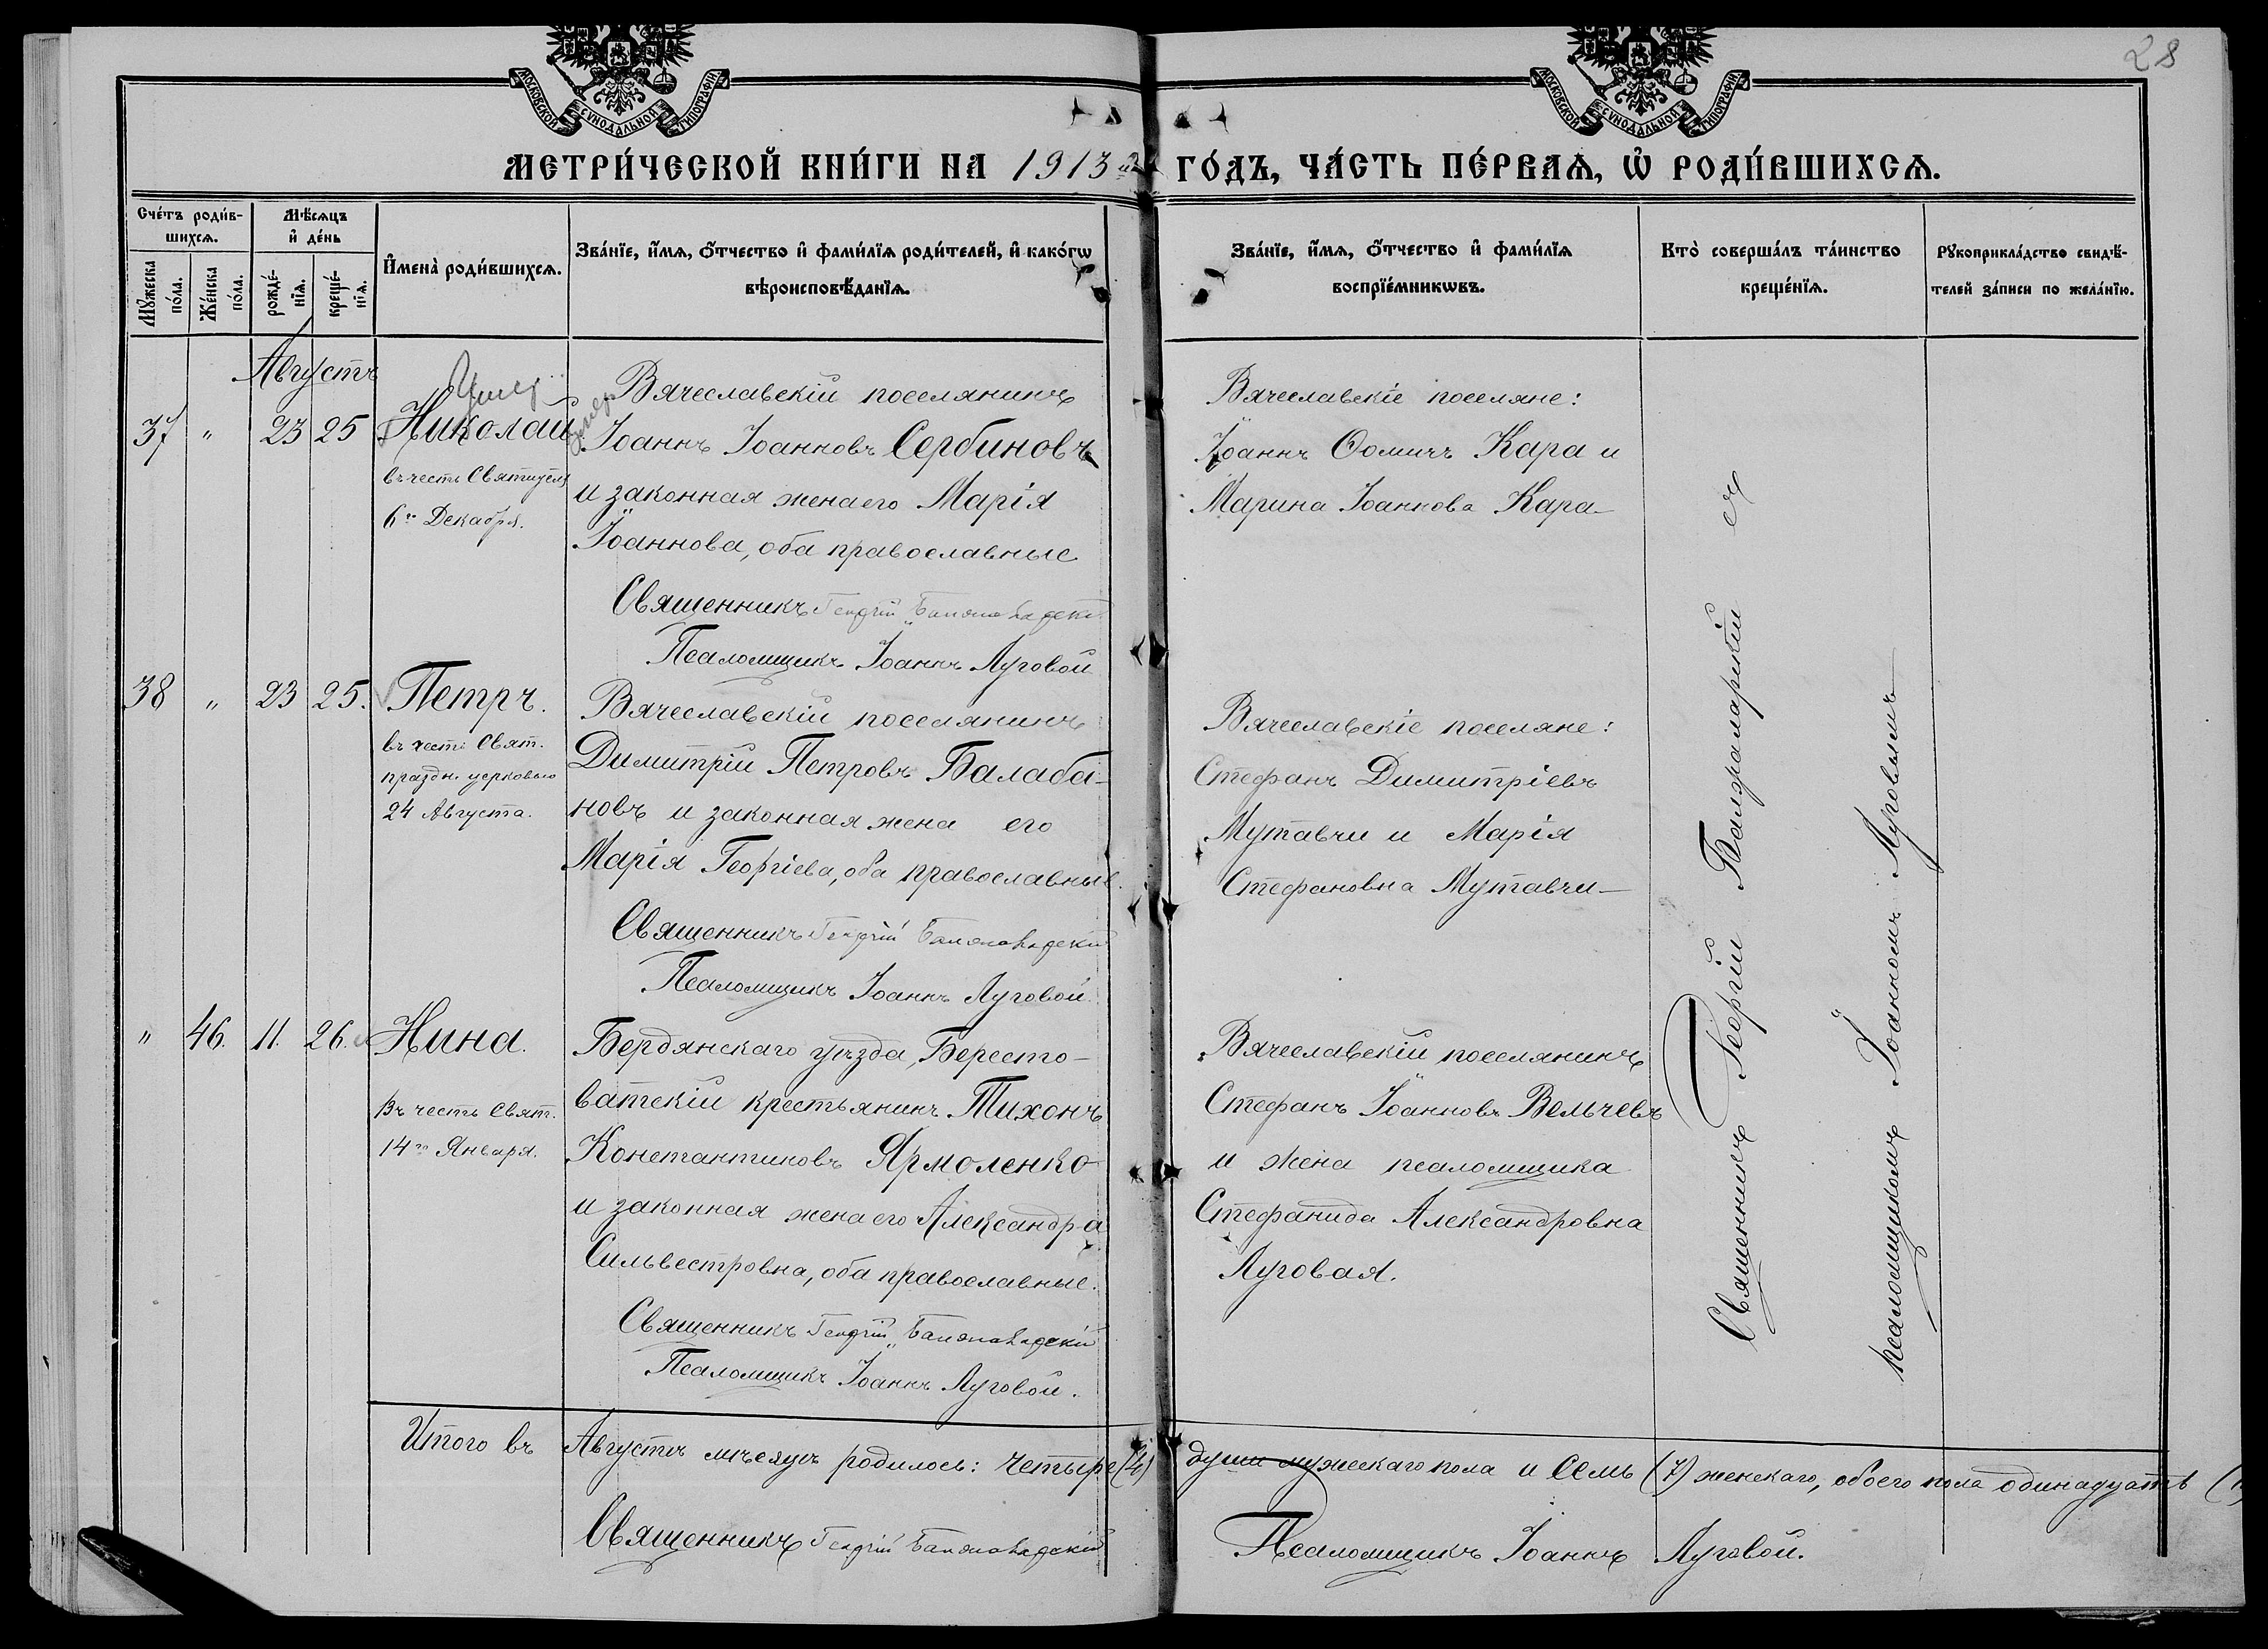 28
МОСКОВСКОЙ СѴНОДАЛЬНОЙ ТИПОГРАФІИ
МОСКОВСКОЙ СѴНОДАЛЬНОЙ ТИПОГРАФІИ
МЕТРИ́ЧЕСКОЙ КНИ́ГИ НА 1913й ГО́ДЪ, ЧА́СТЬ ПЕ́РВАѦ, Ѡ РОДИ́ВШИХСѦ.
Сче́тъ роди́в-
шихсѧ.
Мꙋ́жеска по́ла.
Же́нска по́ла.
Мѣ́сѧцъ
и҆ де́нь
рожде́-нїѧ.
креще́-нїѧ.
И҆мена̀ роди́вшихсѧ.
Зва́нїе, и҆́мѧ, ѻ҆́тчество и҆ фами́лїѧ роди́телей, и҆ како́гѡ
вѣроисповѣ́данїѧ.
Зва́нїе, и҆́мѧ, ѻ҆́тчество и҆ фами́лїѧ
воспрїе́мникѡвъ.
Кто̀ соверша́лъ та́инство
креще́нїѧ.
Рꙋкоприкла́дство свидѣ́-
телей за́писи по жела́нїю.
Августъ
37 " 23 25 Николай
въ честь Святителя
6го Декабря.
Вячеславскій поселянинъ
Іоаннъ Іоанновъ Сербиновъ
и законная жена его Марія
Іоаннова, оба православные
Священникъ Георгій
Псаломщикъ Іоаннъ Луговой
Вячеславскіе поселяне:
Іоаннъ Ѳомичъ Кара и
Марина Іоаннова Кара
38 " 23 25. Петръ.
въ честь Свят.
праздн. церковью
24 Августа.
Вячеславскій поселянинъ
Димитрій Петровъ Балаба-
новъ и законная жена его
Марія Георгіева, оба православные.
Священникъ Георгій
Псаломщикъ Іоаннъ Луговой
Вячеславскіе поселяне:
Стефанъ Димитріевъ
Мутавчи и Марія
Стефановна Мутавчи
" 46. 11. 26. Нина.
Въ честь Свят.
14го Января.
Бердянскаго уѣзда, Бересто-
ватскій крестьянинъ Тихонъ
Константиновъ Ярмоленко
и законная жена его Александра
Сильвестровна, оба православные.
Священникъ Георгій
Псаломщикъ Іоаннъ Луговой.
Вячеславскій поселянинъ
Стефанъ Іоанновъ Вельчевъ
и жена псаломщика
Стефанида Александровна
Луговая.
Священникъ Георгій съ
псаломщикомъ Іоанномъ Луговымъ
Итого въ Августѣ мѣсяцѣ родилось: четыре (4) души мужескаго пола и семь (7) женскаго, обоего пола одинадцать (11)
Священникъ Георгій
Псаломщикъ Іоаннъ Луговой.